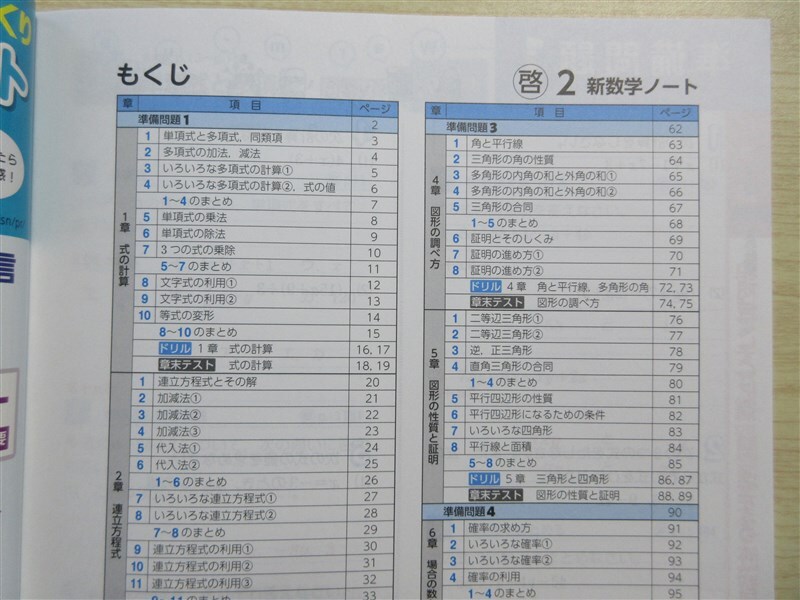 くり
ト
もくじ
啓 2 新数学ノート
章 項目 ページ
準備問題1 2
1章 式の計算
1 単項式と多項式，同類項 3
2 多項式の加法，減法 4
3 いろいろな多項式の計算① 5
4 いろいろな多項式の計算②，式の値 6
1〜4のまとめ 7
5 単項式の乗法 8
6 単項式の除法 9
7 3つの式の乗除 10
5〜7のまとめ 11
8 文字式の利用① 12
9 文字式の利用② 13
10 等式の変形 14
8〜10のまとめ 15
ドリル 1章 式の計算 16, 17
章末テスト 式の計算 18, 19
2章 連立方程式
1 連立方程式とその解 20
2 加減法① 21
3 加減法② 22
4 加減法③ 23
5 代入法① 24
6 代入法② 25
1〜6のまとめ 26
7 いろいろな連立方程式① 27
8 いろいろな連立方程式② 28
7〜8のまとめ 29
9 連立方程式の利用① 30
10 連立方程式の利用② 31
11 連立方程式の利用③ 32
9〜11のまとめ 33
章 項目 ページ
準備問題3 62
4章 図形の調べ方
1 角と平行線 63
2 三角形の角の性質 64
3 多角形の内角の和と外角の和① 65
4 多角形の内角の和と外角の和② 66
5 三角形の合同 67
1〜5のまとめ 68
6 証明とそのしくみ 69
7 証明の進め方① 70
8 証明の進め方② 71
ドリル 4章 角と平行線，多角形の角 72, 73
章末テスト 図形の調べ方 74, 75
5章 図形の性質と証明
1 二等辺三角形① 76
2 二等辺三角形② 77
3 逆，正三角形 78
4 直角三角形の合同 79
1〜4のまとめ 80
5 平行四辺形の性質 81
6 平行四辺形になるための条件 82
7 いろいろな四角形 83
8 平行線と面積 84
5〜8のまとめ 85
ドリル 5章 三角形と四角形 86, 87
章末テスト 図形の性質と証明 88, 89
準備問題4 90
6章 場合の数
1 確率の求め方 91
2 いろいろな確率① 92
3 いろいろな確率② 93
4 確率の利用 94
1〜4のまとめ 95